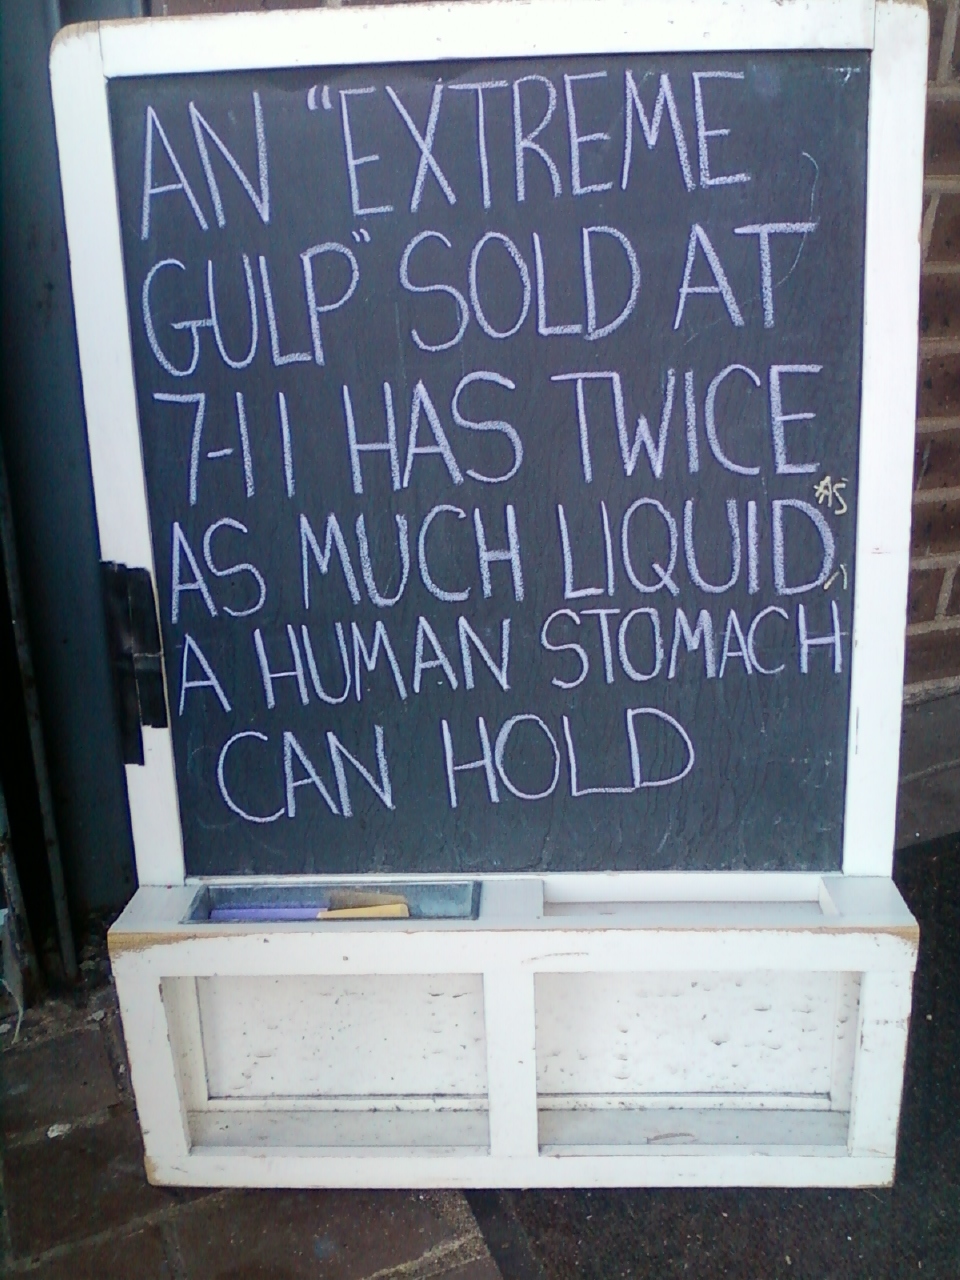 AN "EXTREME
GULP" SOLD AT
7-11 HAS TWICE
AS MUCH LIQUID ^ AS
A HUMAN STOMACH
CAN HOLD